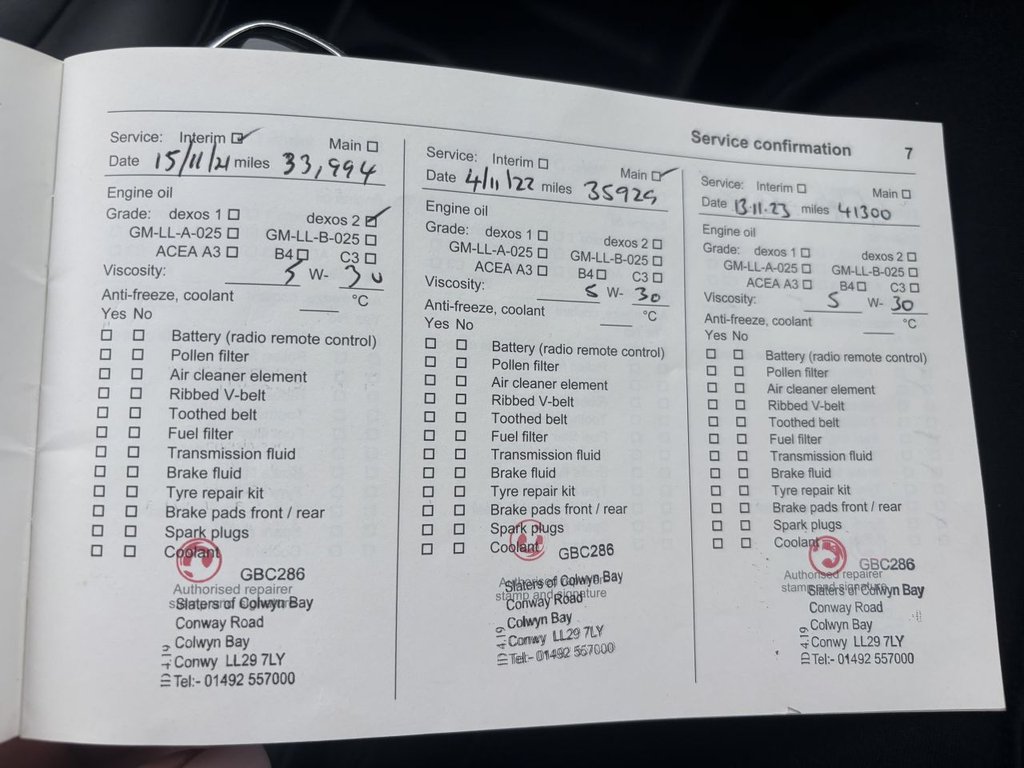 Service confirmation 7
Service: Interim ☑ Main ☐
Date 15/11/21 miles 33,994
Engine oil
Grade: dexos 1 ☐ dexos 2 ☑
GM-LL-A-025 ☐ GM-LL-B-025 ☐
ACEA A3 ☐ B4 ☐ C3 ☐
Viscosity: 5 W- 30
Anti-freeze, coolant °C
Yes No
☐ ☐ Battery (radio remote control)
☐ ☐ Pollen filter
☐ ☐ Air cleaner element
☐ ☐ Ribbed V-belt
☐ ☐ Toothed belt
☐ ☐ Fuel filter
☐ ☐ Transmission fluid
☐ ☐ Brake fluid
☐ ☐ Tyre repair kit
☐ ☐ Brake pads front / rear
☐ ☐ Spark plugs
☐ ☐ Coolant
GBC286
Authorised repairer
Slaters of Colwyn Bay
Conway Road
Colwyn Bay
Conwy LL29 7LY
Tel:- 01492 557000
ID 4.19
Service: Interim ☐ Main ☑
Date 4/11/22 miles 35929
Engine oil
Grade: dexos 1 ☐ dexos 2 ☐
GM-LL-A-025 ☐ GM-LL-B-025 ☐
ACEA A3 ☐ B4 ☐ C3 ☐
Viscosity: 5 W- 30
Anti-freeze, coolant °C
Yes No
☐ ☐ Battery (radio remote control)
☐ ☐ Pollen filter
☐ ☐ Air cleaner element
☐ ☐ Ribbed V-belt
☐ ☐ Toothed belt
☐ ☐ Fuel filter
☐ ☐ Transmission fluid
☐ ☐ Brake fluid
☐ ☐ Tyre repair kit
☐ ☐ Brake pads front / rear
☐ ☐ Spark plugs
☐ ☐ Coolant
GBC286
Authorised repairer
Slaters of Colwyn Bay
stamp and signature
Conway Road
Colwyn Bay
Conwy LL29 7LY
Tel:- 01492 557000
ID 4.19
Service: Interim ☐ Main ☐
Date 13.11.23 miles 41300
Engine oil
Grade: dexos 1 ☐ dexos 2 ☐
GM-LL-A-025 ☐ GM-LL-B-025 ☐
ACEA A3 ☐ B4 ☐ C3 ☐
Viscosity: 5 W- 30
Anti-freeze, coolant °C
Yes No
☐ ☐ Battery (radio remote control)
☐ ☐ Pollen filter
☐ ☐ Air cleaner element
☐ ☐ Ribbed V-belt
☐ ☐ Toothed belt
☐ ☐ Fuel filter
☐ ☐ Transmission fluid
☐ ☐ Brake fluid
☐ ☐ Tyre repair kit
☐ ☐ Brake pads front / rear
☐ ☐ Spark plugs
☐ ☐ Coolant
GBC286
Authorised repairer
stamp and signature
Slaters of Colwyn Bay
Conway Road
Colwyn Bay
Conwy LL29 7LY
Tel:- 01492 557000
ID 4.19